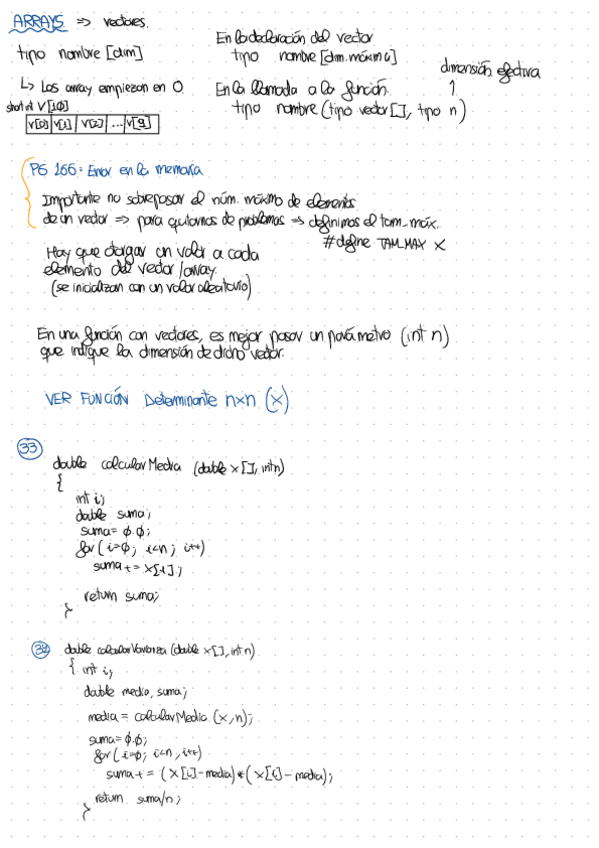 ARRAYS => vectores.
tipo nombre [dim]
↳ Los array empiezan en 0
short int V[10]
V[0] V[1] V[2] ... V[9]
En la declaración del vector
tipo nombre [dim.máxima]
En la llamada a la función
dimensión efectiva
↑
tipo nombre (tipo vector[], tipo n)
PG 166: Error en la memoria
Importante no sobrepasar el núm. máximo de elementos
de un vector => para quitarnos de problemas => definimos el tam. máx.
#define TAM_MAX X
Hay que otorgar un valor a cada
elemento del vector/array.
(se inicializan con un valor aleatorio)
En una función con vectores, es mejor pasar un parámetro (int n)
que indique la dimensión de dicho vector.
VER FUNCIÓN Determinante nxn (x)
33
double calcularMedia (double x[], int n)
{
int i;
double suma;
suma = 0.0;
for (i=0; i<n; i++)
suma += x[i];
return suma;
}
double calcularVarianza (double x[], int n)
{ int i;
double media, suma;
media = calcularMedia (x,n);
suma = 0.0;
for (i=0; i<n, i++)
suma += (x[i]-media)*(x[i]-media);
return suma/n;
}